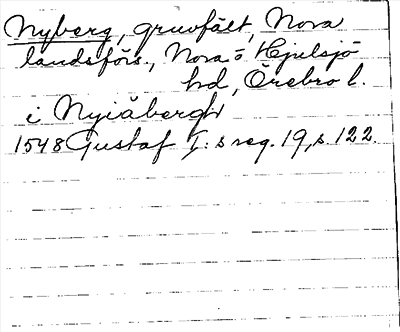 Nyberg, gruvfält, Nora
landsförs., Nora o. Hjulsjö
hd, Örebro l.
i Nyiåberghit
1548 Gustaf I:s reg. 19, s. 122.